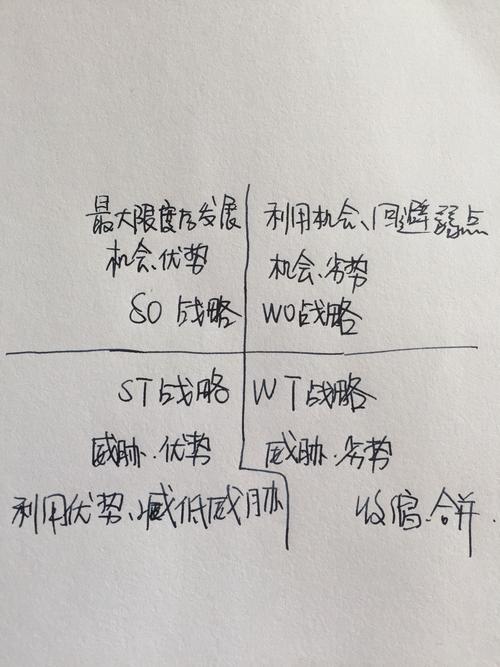 最大限度发展
机会、优势
SO 战略
利用机会、回避弱点
机会、劣势
WO战略
ST战略
威胁、优势
利用优势、减低威胁
WT战略
威胁、劣势
收缩、合并.